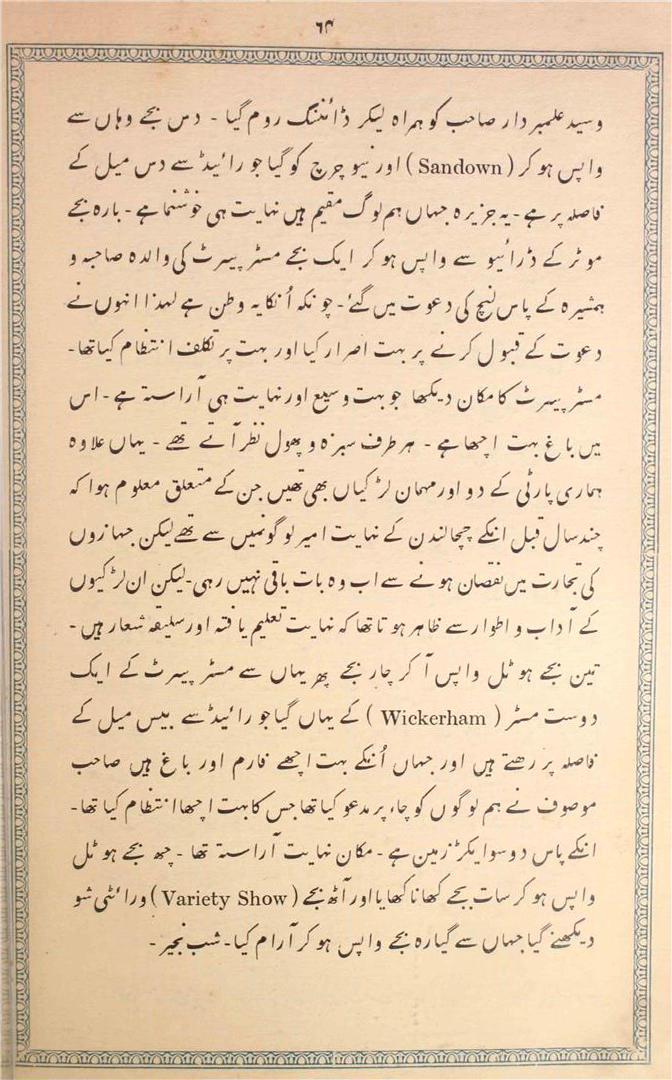 ۶۴
و سید علمبردار صاحب کو ہمراہ لیکر ڈائننگ روم گیا - دس بجے وہاں سے
واپس ہوکر (Sandown) اور نیو چرچ کو گیا جو رائیڈ سے دس میل کے
فاصلہ پر ہے - یہ جزیرہ جہاں ہم لوگ مقیم ہیں نہایت ہی خوشنما ہے - بارہ بجے
موٹر کے ڈرائیو سے واپس ہوکر ایک بجے مسٹر پیرٹ کی والدہ صاحبہ و
ہمشیرہ کے پاس لنچ کی دعوت میں گئے - چونکہ اُنکا یہ وطن ہے لہذا انہوں نے
دعوت کے قبول کرنے پر بہت اصرار کیا اور بہت پر تکلف انتظام کیا تھا -
مسٹر پیرٹ کا مکان دیکھا جو بہت وسیع اور نہایت ہی آراستہ ہے - اس
میں باغ بہت اچھا ہے - ہر طرف سبزہ و پھول نظر آتے تھے - یہاں علاوہ
ہماری پارٹی کے دو اور مہمان لڑکیاں بھی تھیں جن کے متعلق معلوم ہوا کہ
چند سال قبل انکے چچا لندن کے نہایت امیر لوگونمیں سے تھے لیکن جہازوں
کی تجارت میں نقصان ہونے سے اب وہ بات باقی نہیں رہی - لیکن ان لڑکیوں
کے آداب و اطوار سے ظاہر ہوتا تھا کہ نہایت تعلیم یافتہ اور سلیقہ شعار ہیں -
تین بجے ہوٹل واپس آکر چار بجے پھر یہاں سے مسٹر پیرٹ کے ایک
دوست مسٹر (Wickerham) کے یہاں گیا جو رائیڈ سے بیس میل کے
فاصلہ پر رہتے ہیں اور جہاں اُنکے بہت اچھے فارم اور باغ ہیں صاحب
موصوف نے ہم لوگوں کو چاء پر مدعو کیا تھا جس کا بہت اچھا انتظام کیا تھا -
انکے پاس دو سو ایکڑ زمین ہے - مکان نہایت آراستہ تھا - چھ بجے ہوٹل
واپس ہوکر سات بجے کھانا کھایا اور آٹھ بجے (Variety Show) ورائٹی شو
دیکھنے گیا جہاں سے گیارہ بجے واپس ہوکر آرام کیا - شب بخیر -